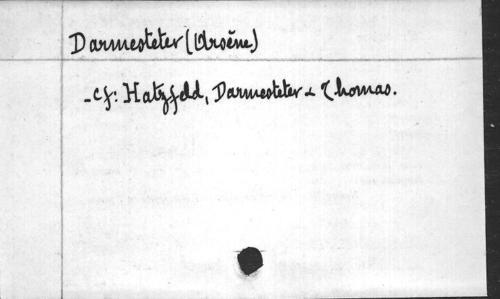 Darmesteter (Arsène)
- cf: Hatzfeld, Darmesteter & Thomas.